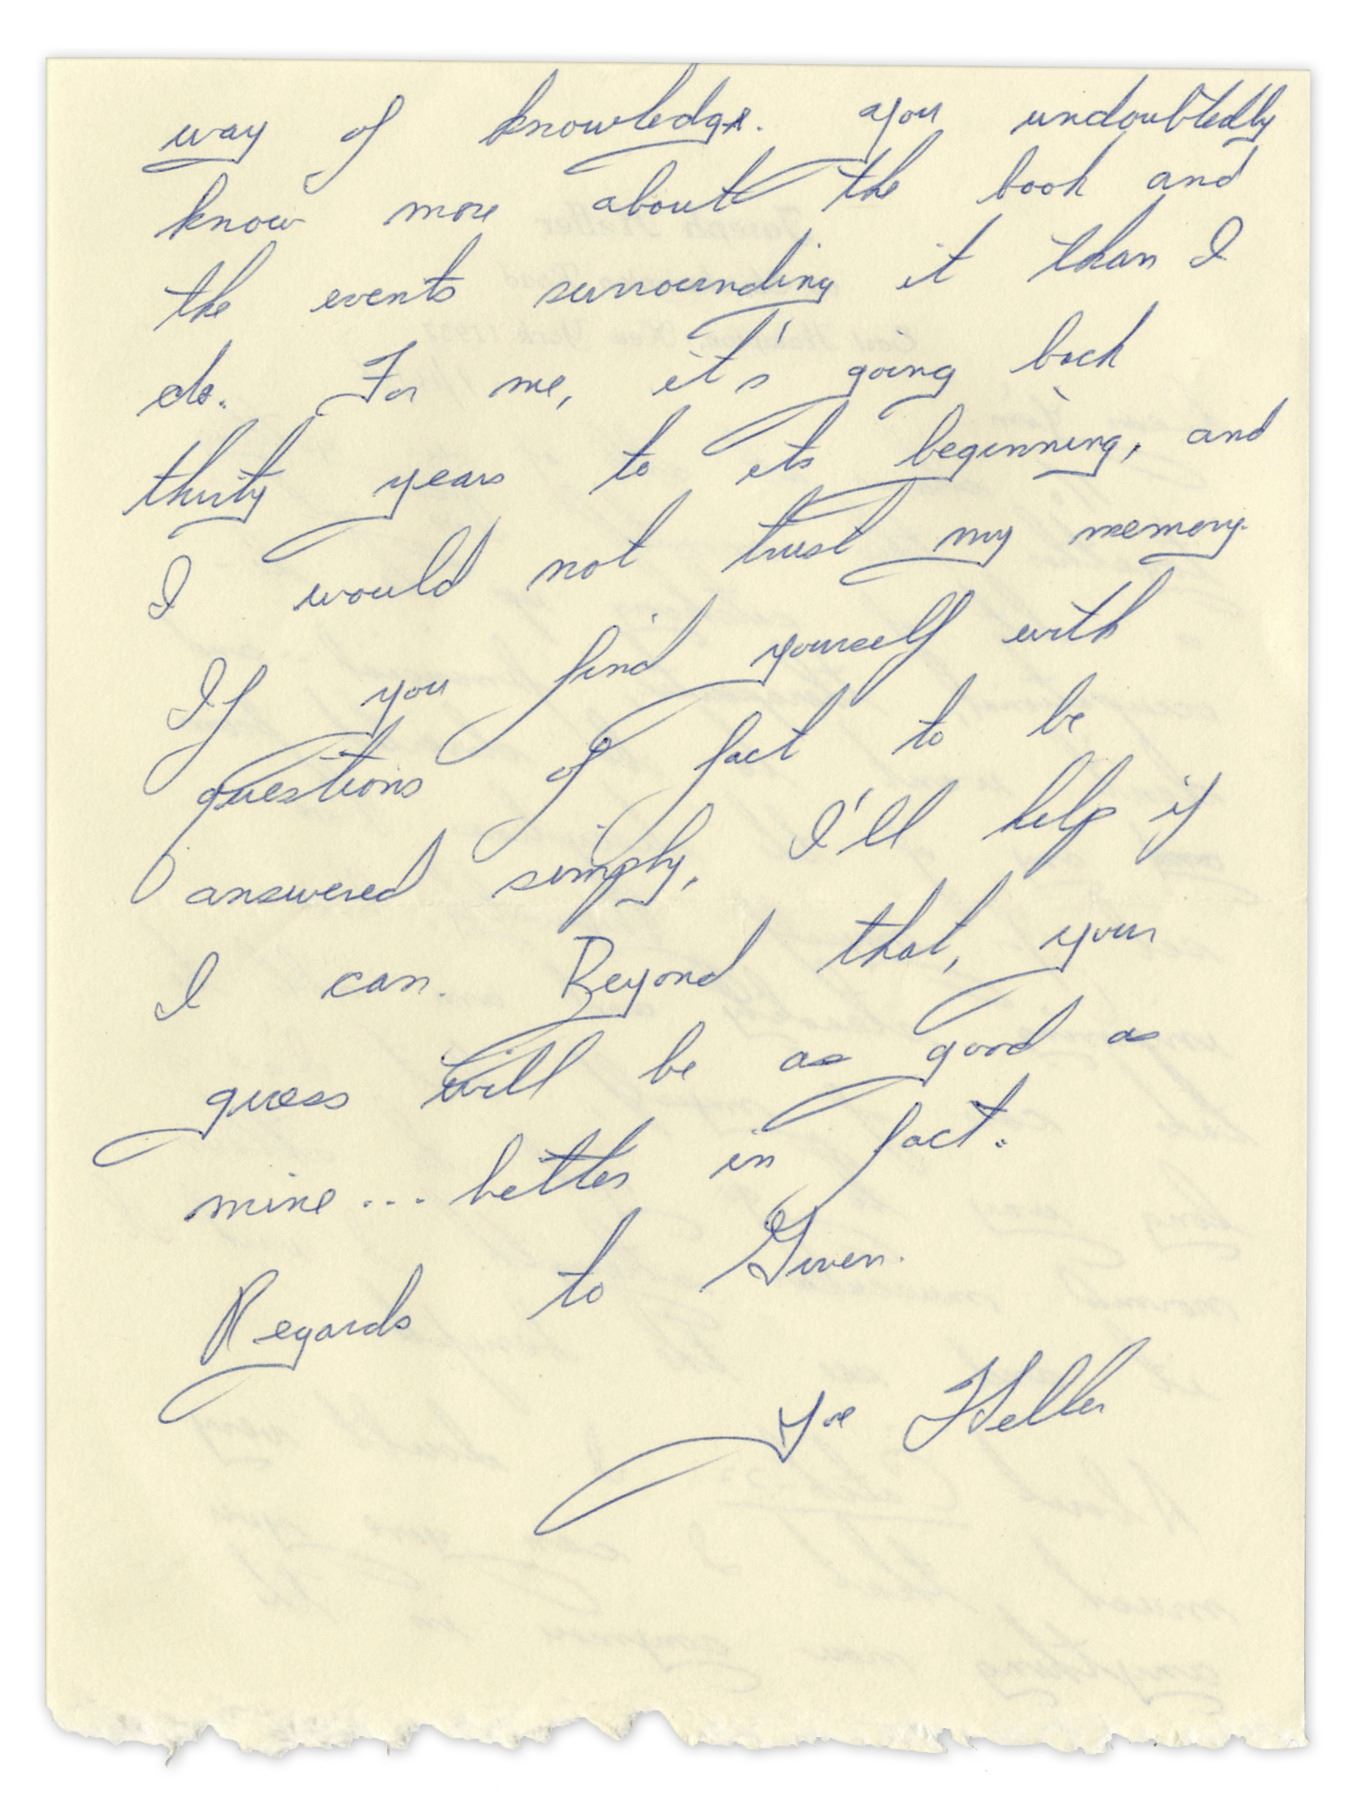 way of knowledge. You undoubtedly
know more about the book and
the events surrounding it than I
do. For me, it's going back
thirty years to its beginning, and
I would not trust my memory.
If you find yourself with
questions of fact to be
answered simply, I'll help if
I can. Beyond that, your
guess will be as good as
mine... better in fact.
Regards to Gwen.
Joe Heller